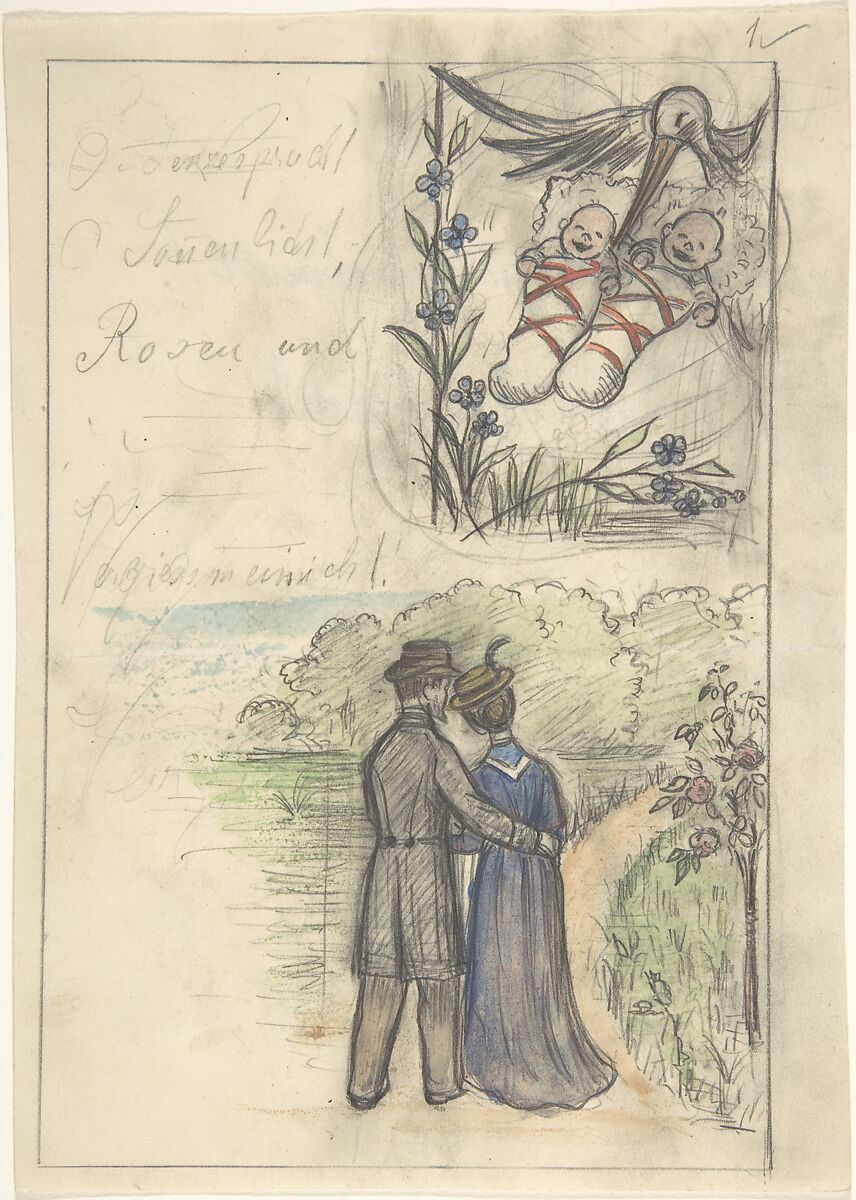 1
O Lenzespracht
O Sonnenlicht,
Rosen und
Vergissmeinnicht!